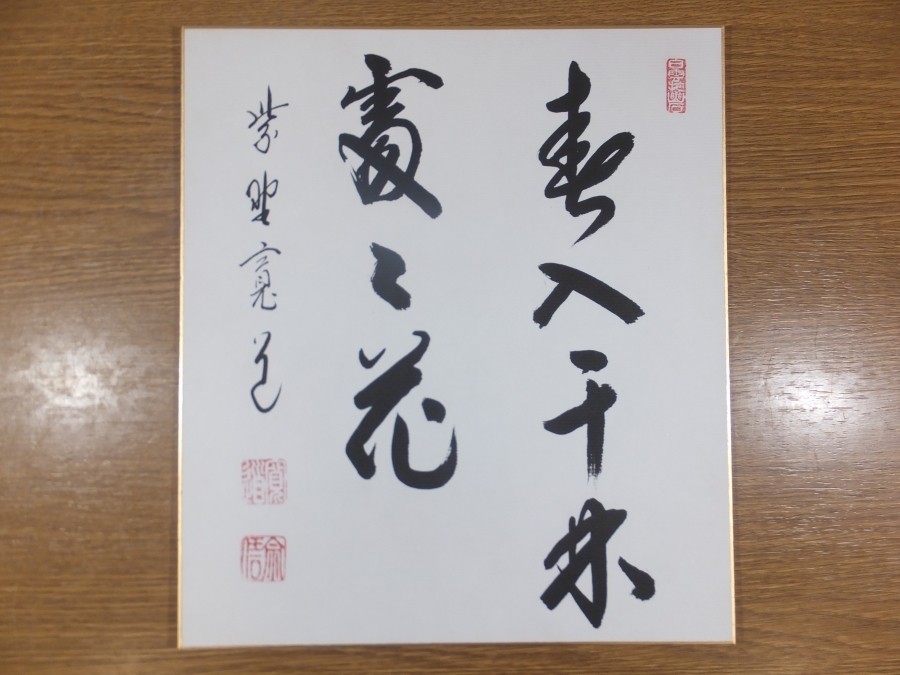 春入千林
處々花
紫野寛道
寛道